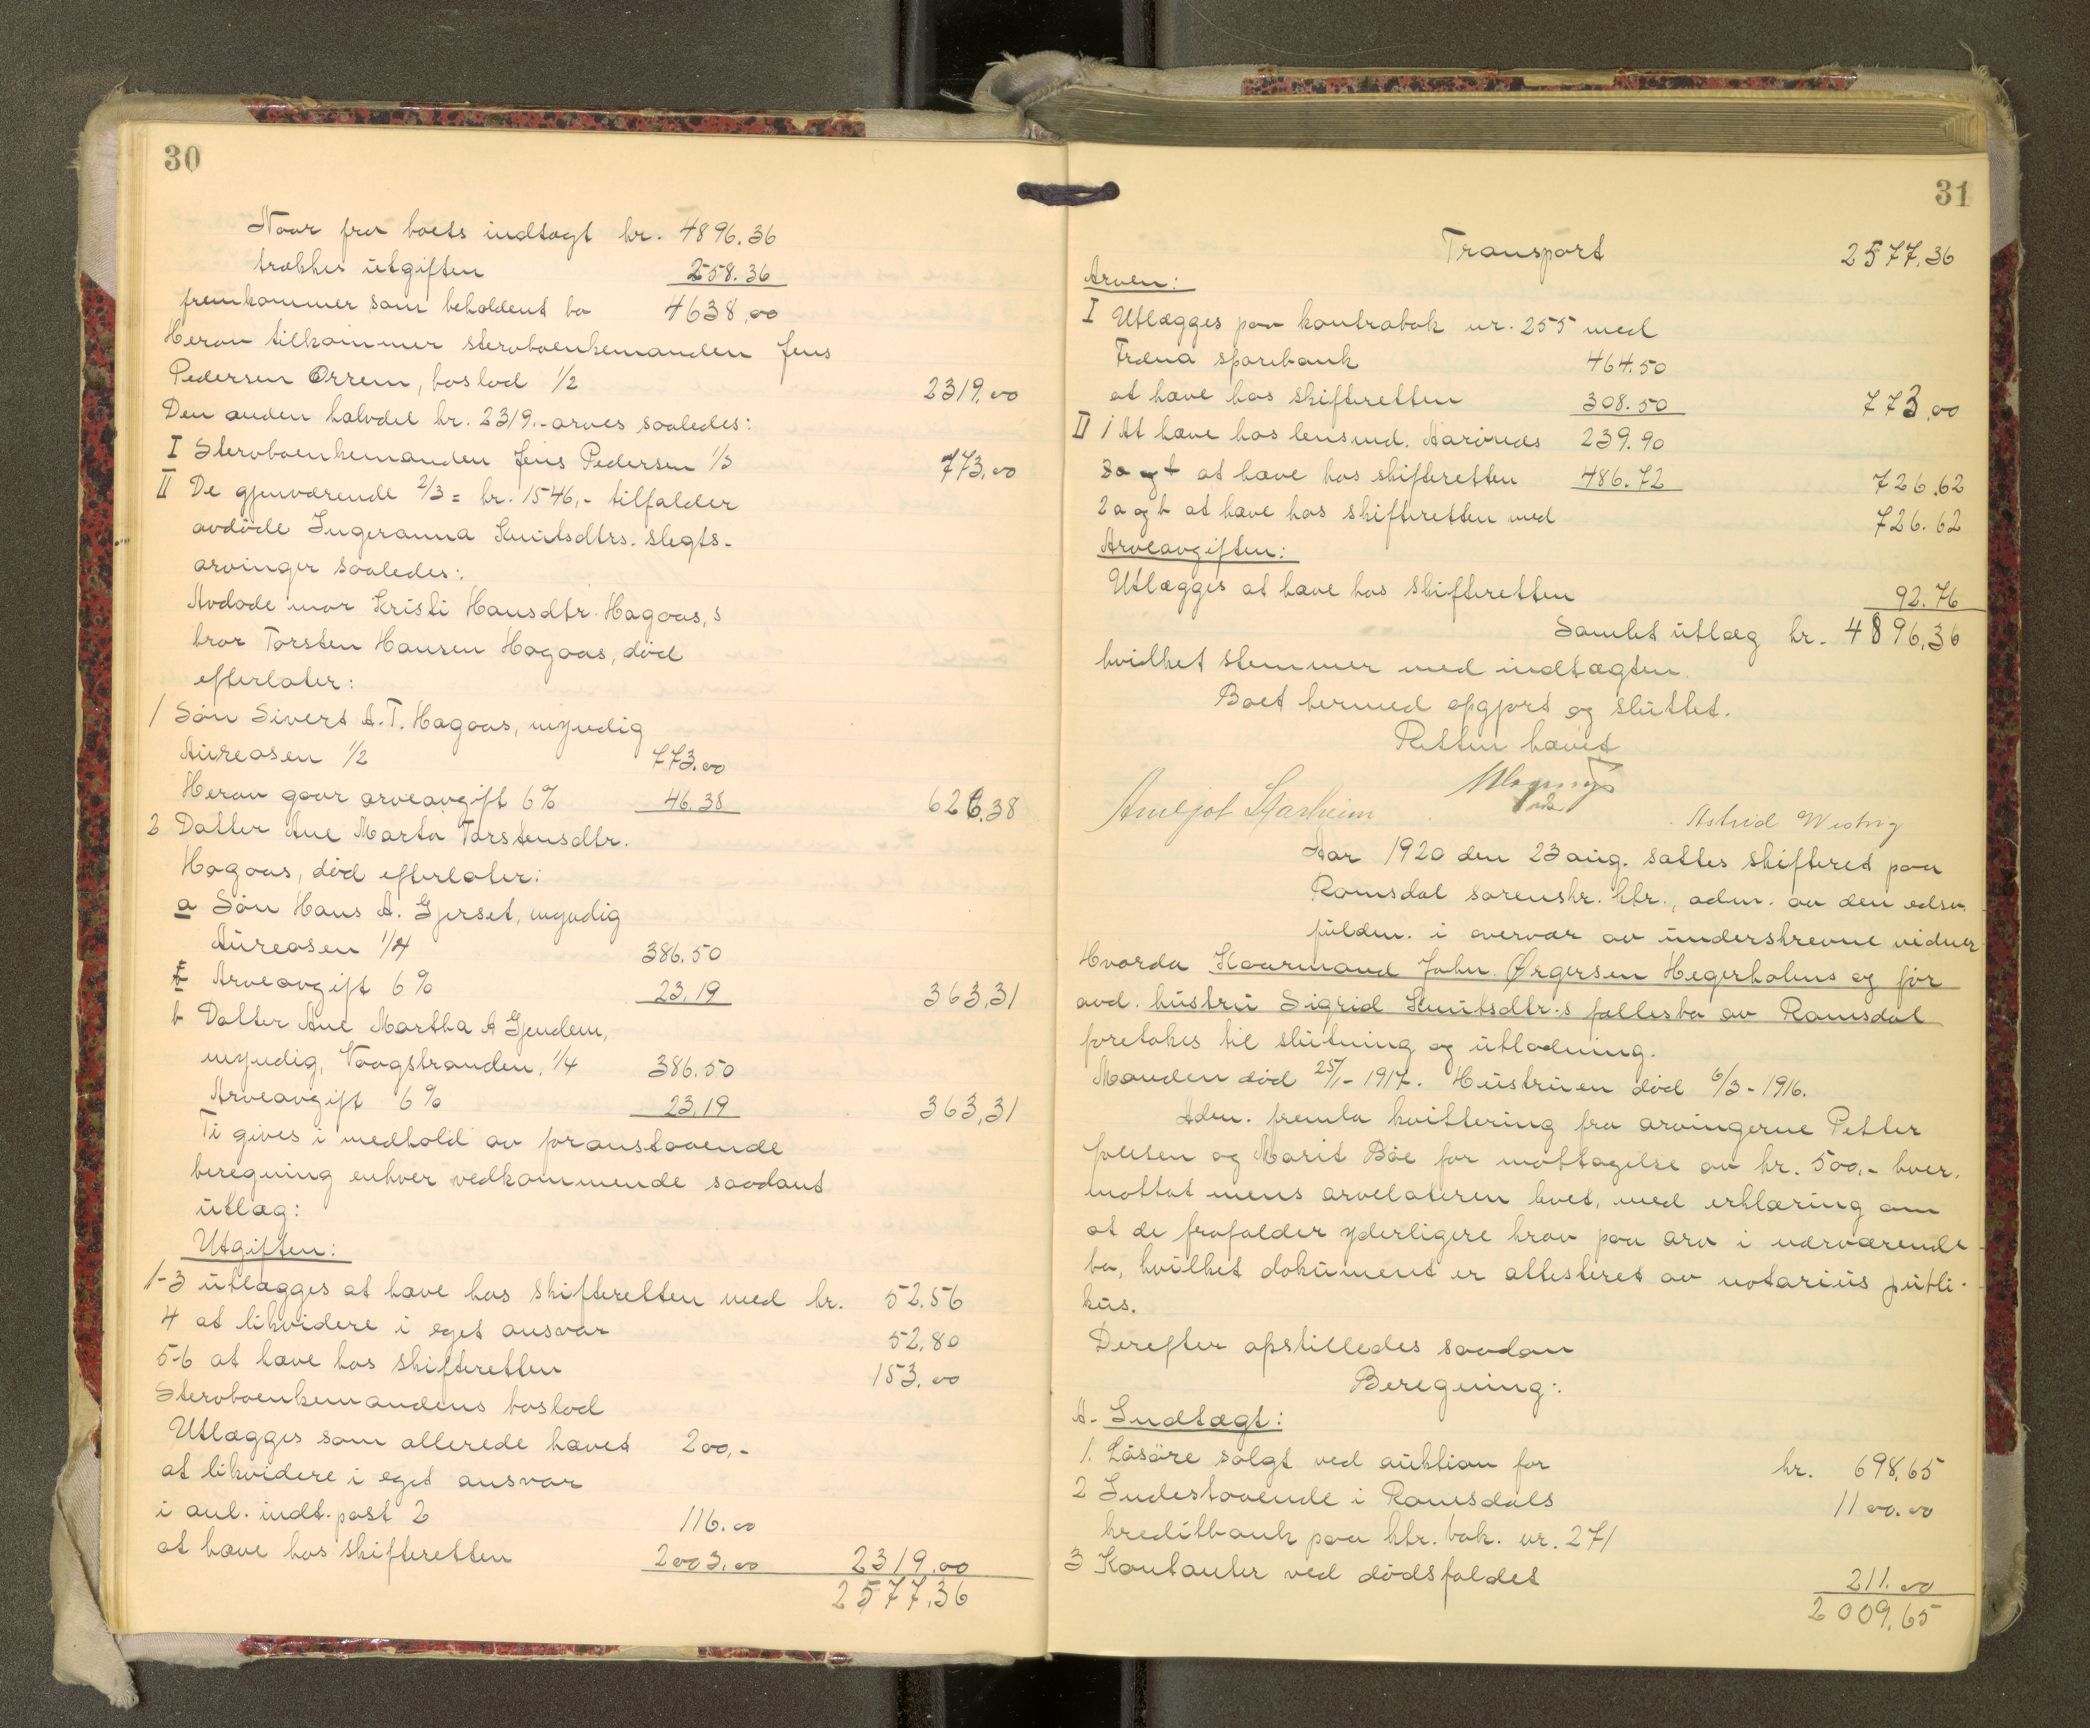 30
Naar fra boets indtægt kr. 4896.36
trækkes utgiften 258.36
fremkommer som beholdent bo 4638,00
Herav tilkommer stervboenkemanden Jens
Pedersen Orrem, boslod 1/2 2319,00
Den anden halvdel kr. 2319.- arves saaledes:
I Stervboenkemanden Jens Pedersen 1/3 773,00
II De gjenværende 2/3 = kr. 1546,- tilfalder
avdöde Ingeranna Knutsdtrs. slegts-
arvinger saaledes:
Avdøde mor Kristi Hansdtr. Hagaas,s
bror Torsten Hansen Hagaas, död
efterlater:
1 Sön Sivert A.T. Hagaas, myndig
Aureosen 1/2 773.00
Herav gaar arveavgift 6% 46.38 626.38
2 Datter Ane Marta Torstensdtr.
Hagaas, död efterlater:
a Sön Hans A. Gjerset, myndig
Aureosen 1/4 386.50
Arveavgift 6% 23.19 363,31
b Datter Ane Martha A Gjendem,
myndig, Vaagstranden, 1/4 386.50
Arveavgift 6% 23.19 363,31
Ti gives i medhold av foranstaaende
beregning enhver vedkommende saadant
utlæg:
Utgiften:
1-3 utlægges at hæve hos skifteretten med kr. 52.56
4 at likvidere i eget ansvar 52,80
5-6 at hæve hos skifteretten 153.00
Stervboenkemandens boslod
Utlægges som allerede hævet 200,-
at likvidere i eget ansvar
i anl. indt. post 2 116.00
at hæve hos skifteretten 2003.00 2319.00
2577,36
31
Transport 2577,36
Arven:
I Utlægges paa kontrabok nr. 255 med
Fræna sparebank 464.50
at hæve hos skifteretten 308.50 773,00
II 1 At hæve hos lensmd. Aarönes 239.90
at hæve hos skifteretten 486.72 726.62
2 a og b at hæve hos skifteretten med 726.62
Arveavgiften:
Utlægges at hæve hos skifteretten 92.76
Samlet utlæg kr. 4896,36
hvilket stemmer med indtægten.
Boet hermed opgjort og sluttet.
Retten hævet
Astrid
Aar 1920 den 23 aug. sattes skifteret paa
Romsdal sorenskr. ktr., adm. av den edsv.
fuldm. i overvær av underskrevne vidner
Hvorda Kaarmand John Ørgersen Hegerholms og før
avd. hustru Sigrid Knutsdtr.s fællesbo av Romsdal
foretokes til slutning og utlodning.
Manden död 25/1-1917. Hustruen död 6/3-1916.
Adm. fremla kvittering fra arvingerne Petter
Joensen og Marit Böe for mottagelse av kr. 500,- hver,
mottat mens arvelateren levet, med erklæring om
at de frafalder yderligere krav paa arv i nærværende
bo, hvilket dokument er attesteret av notarius publi-
kus.
Derefter opstilledes saadan
Beregning:
A. Indtægt:
1. Lösöre solgt ved auktion for kr. 698,65
2 Indestaaende i Romsdals 1100.00
kreditbank paa ktr. bok. nr. 271
3 Kontanter ved dödsfaldet 211.00
2009,65